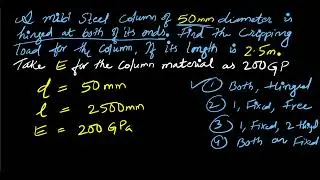 A mild Steel Column of 50mm diameter is
hinged at both of its ends. Find the Cripping
load for the Column, If its length is 2.5m.
Take E for the Column material as 200GP
d = 50mm
l = 2500mm
E = 200GPa
① Both, Hinged
② 1, Fixed, Free
③ 1, Fixed, 2 Hinged
④ Both are Fixed